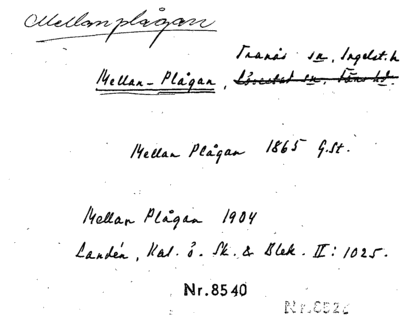 Mellanplågan
Tranås sn, Ingelst. h
Mellan-Plågan, Lövestad sn, Färs hd.
Mellan Plågan 1865 G.St.
Mellan Plågan 1904
Landén, Kal. ö. Sk. & Blek. II: 1025.
Nr.8540